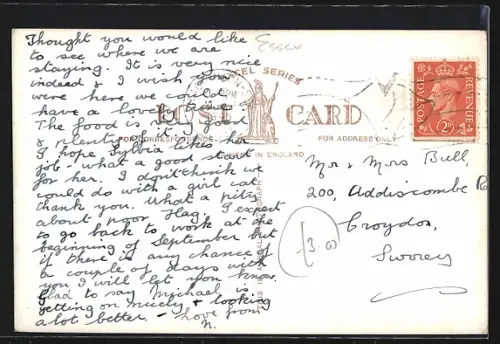 Thought you would like
to see where we are
staying. It is very nice
indeed & I wish you
were here we could
have a lovely time
The food is very good
& plenty of it.
I hope Sylvia likes her
job - what a good start
for her. I don't think we
could do with a girl cat
thank you. What a pity
about poor Flag. I expect
to go back to work at the
beginning of September but
if there is any chance of
a couple of days with
you I will let you know
Glad to say Michael is
getting on nicely & looking
a lot better - Love from
N.
Essex
SERIES
POST CARD
FOR CORRESPONDENCE
FOR ADDRESS ONLY
IN ENGLAND
POSTAGE
REVENUE
2D
Mr & Mrs Bull,
200, Addiscombe R
Croydon,
Surrey